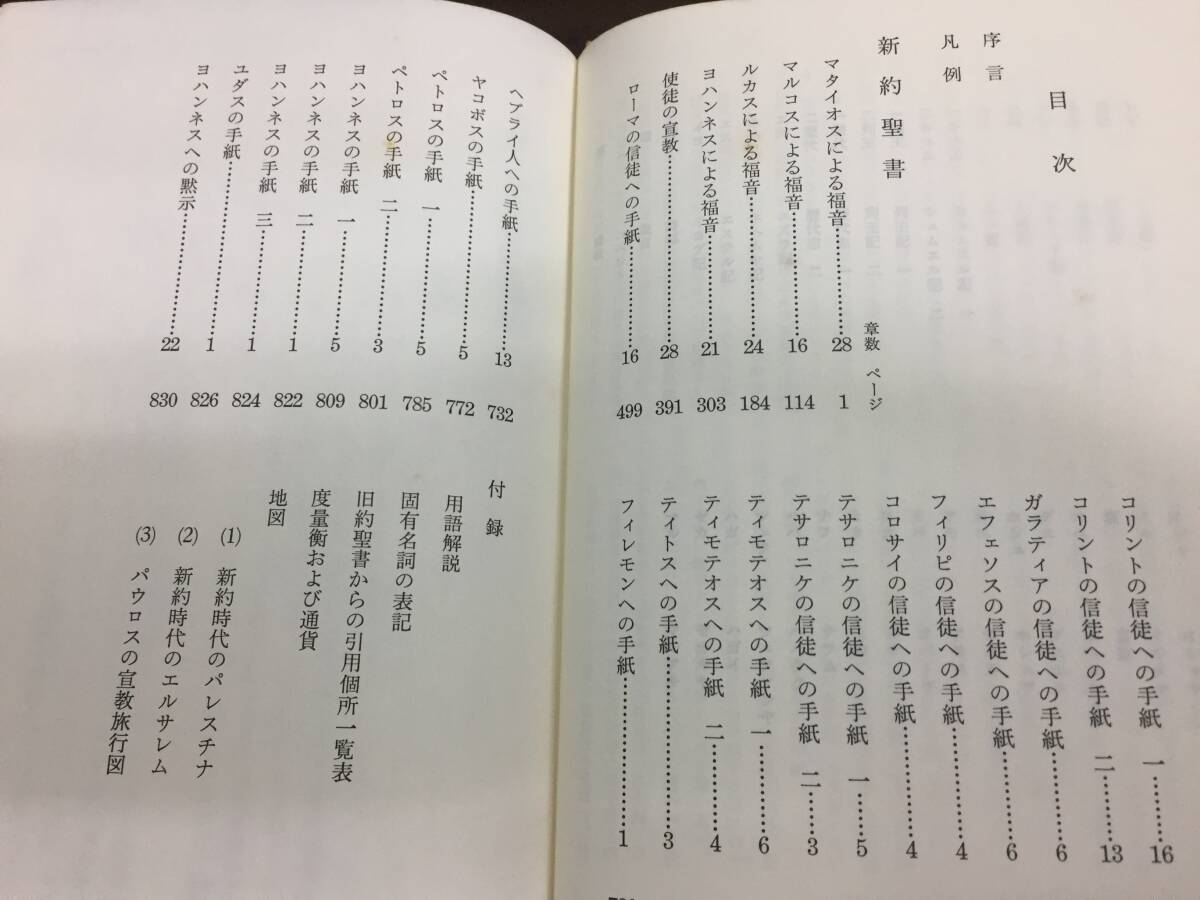 目次
序言
凡例
新約聖書
章数 ページ
マタイオスによる福音……………28 1
マルコスによる福音……………16 114
ルカスによる福音……………24 184
ヨハンネスによる福音……………21 303
使徒の宣教……………28 391
ローマの信徒への手紙……………16 499
コリントの信徒への手紙 一……………16
コリントの信徒への手紙 二……………13
ガラティアの信徒への手紙……………6
エフェソスの信徒への手紙……………6
フィリピの信徒への手紙……………4
コロサイの信徒への手紙……………4
テサロニケの信徒への手紙 一……………5
テサロニケの信徒への手紙 二……………3
ティモテオスへの手紙 一……………6
ティモテオスへの手紙 二……………4
ティトスへの手紙……………3
フィレモンへの手紙……………1
ヘブライ人への手紙……………13 732
ヤコボスの手紙……………5 772
ペトロスの手紙 一……………5 785
ペトロスの手紙 二……………3 801
ヨハンネスの手紙 一……………5 809
ヨハンネスの手紙 二……………1 822
ヨハンネスの手紙 三……………1 824
ユダスの手紙……………1 826
ヨハンネスへの黙示……………22 830
付録
用語解説
固有名詞の表記
旧約聖書からの引用個所一覧表
度量衡および通貨
地図
(1) 新約時代のパレスチナ
(2) 新約時代のエルサレム
(3) パウロスの宣教旅行図